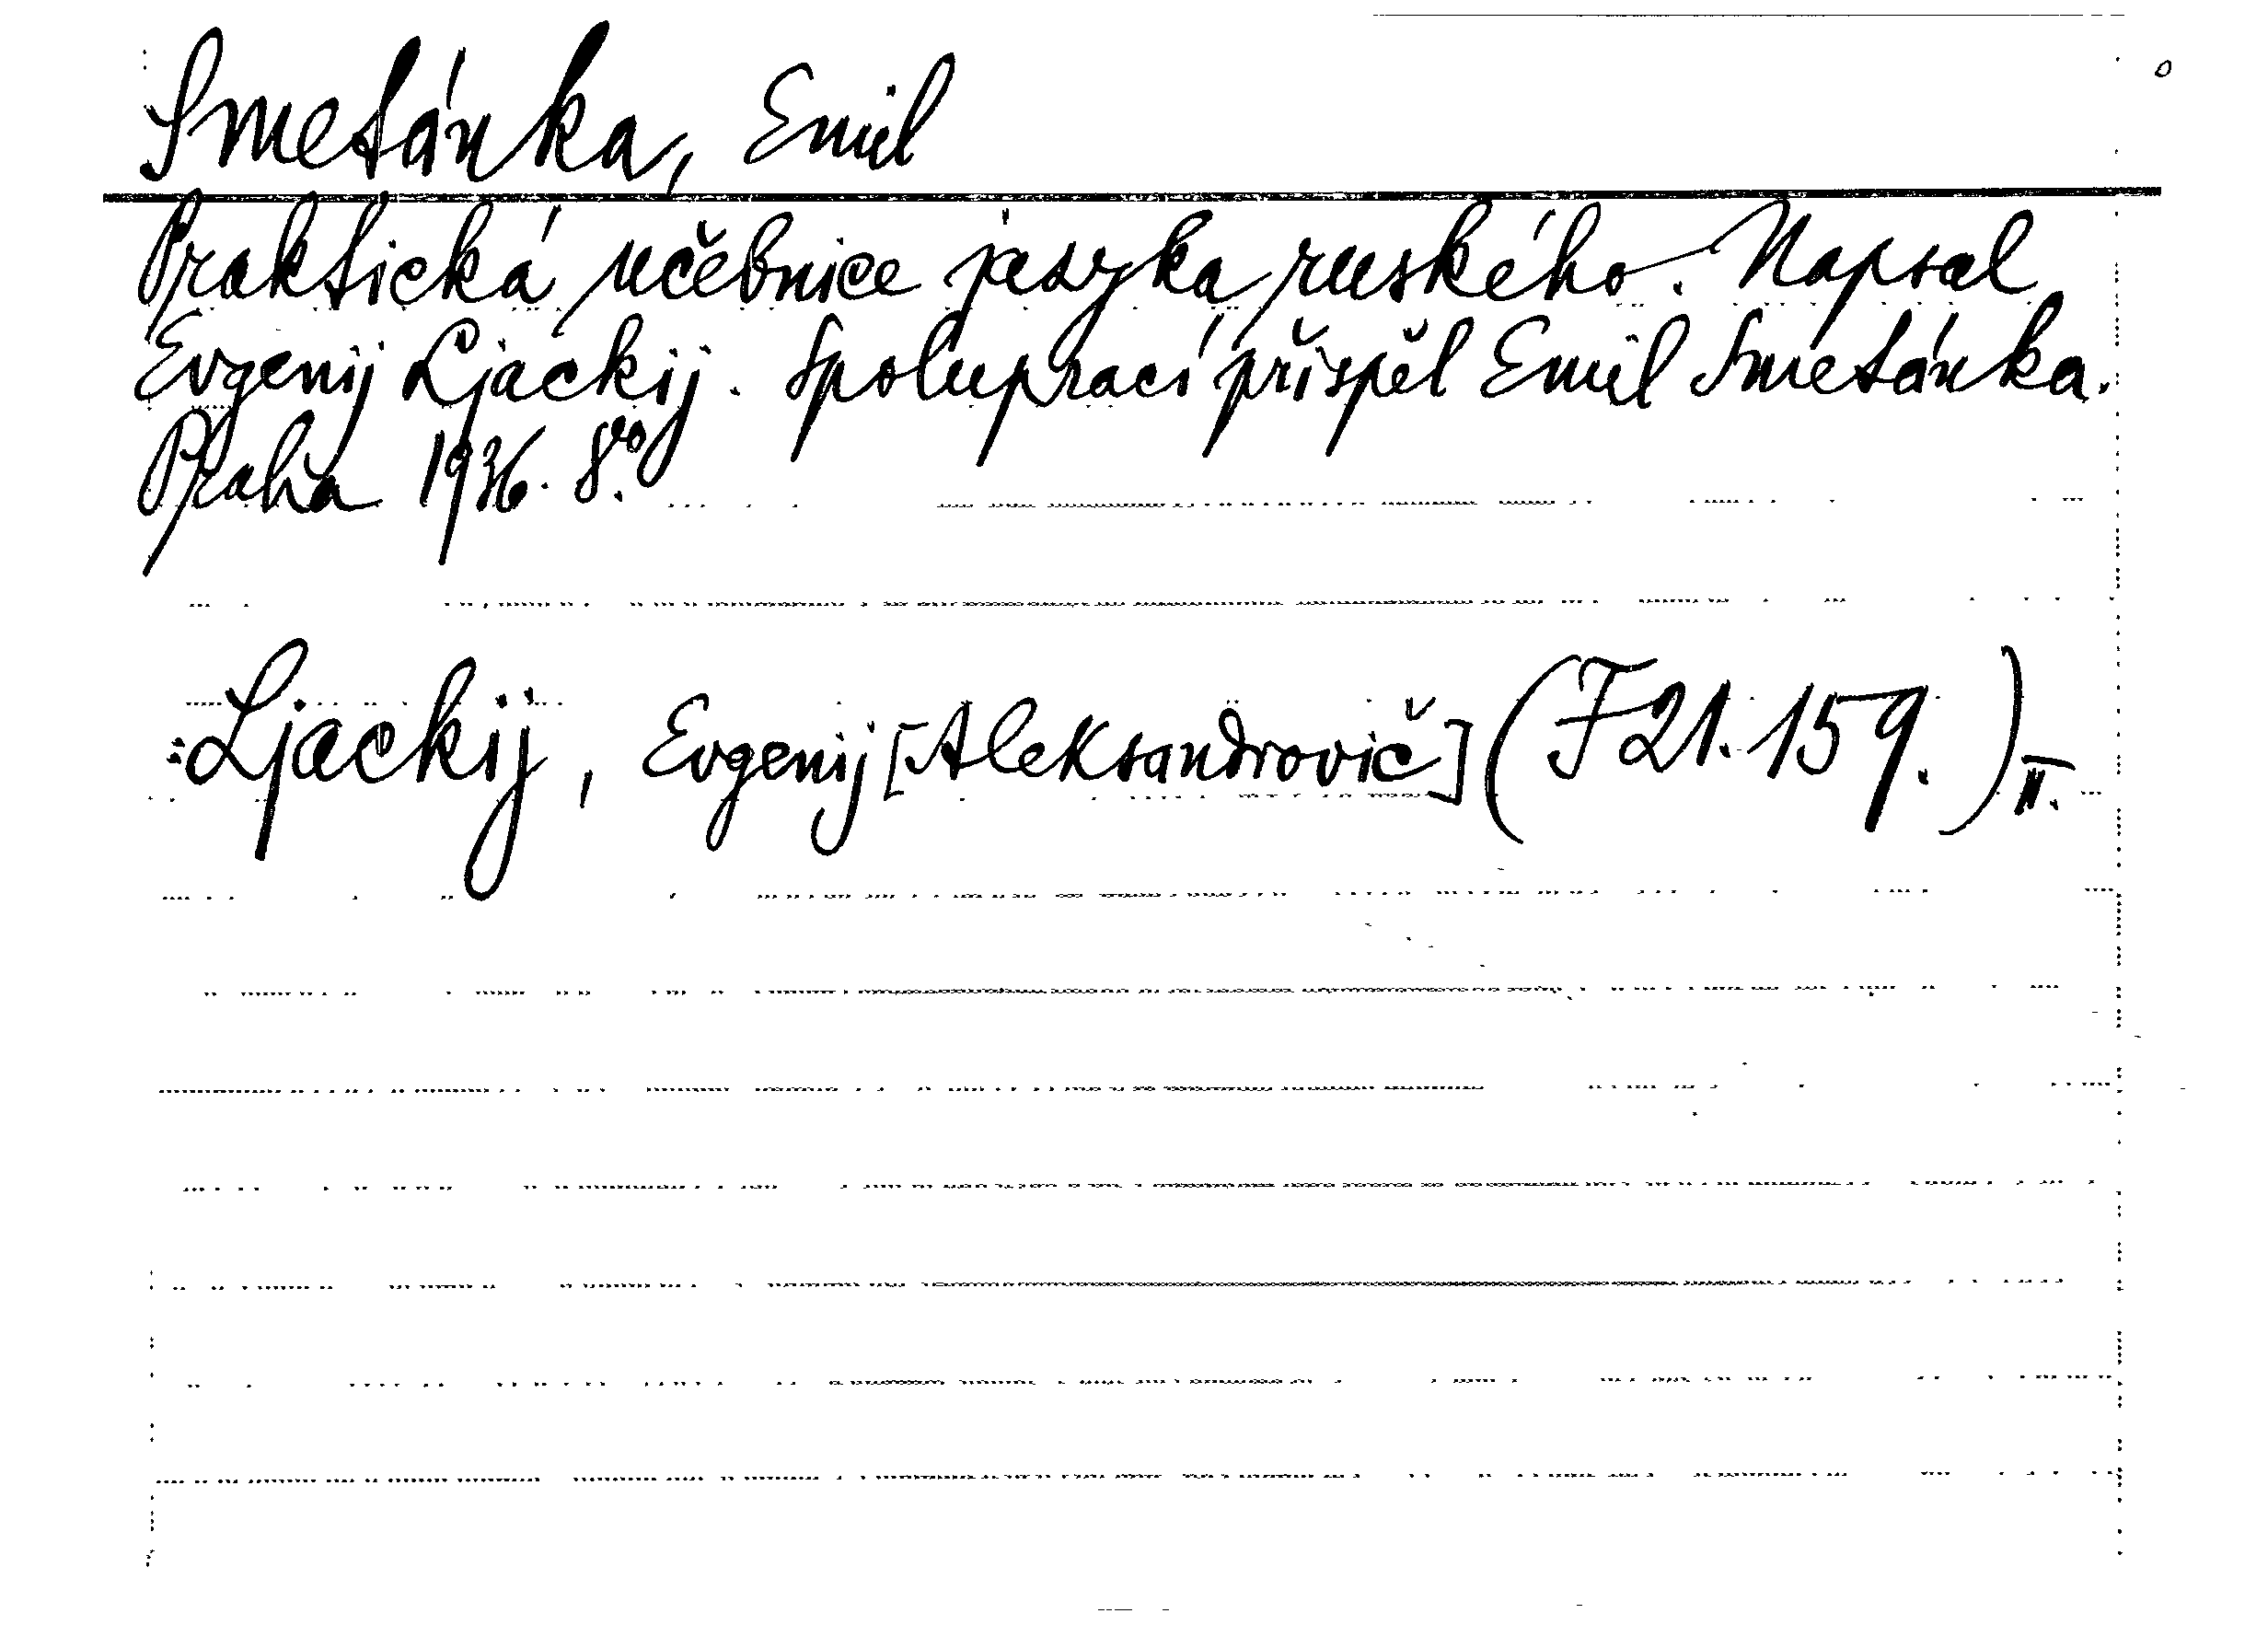 Smetánka, Emil
Praktická učebnice jazyka ruského. Napsal
Evgenij Ljackij. Spoluprací přispěl Emil Smetánka.
Praha 1936. 8vo.
Ljackij, Evgenij [Aleksandrovič] (F 21.159.) II.